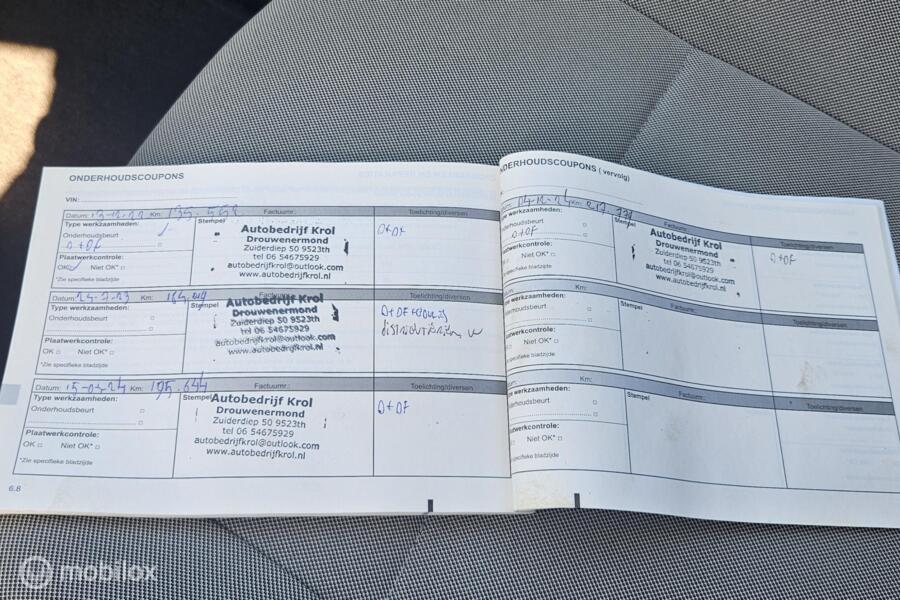 ONDERHOUDSCOUPONS
VIN:
Datum: Km: 135.568 Factuurnr.: Toelichting/diversen
Type werkzaamheden: Stempel
Onderhoudsbeurt
O+OF
Plaatwerkcontrole:
OK Niet OK*
*Zie specifieke bladzijde
Autobedrijf Krol
Drouwenermond
Zuiderdiep 50 9523th
tel 06 54675929
autobedrijfkrol@outlook.com
www.autobedrijfkrol.nl
O+OF
Datum: Km: Factuurnr.: Toelichting/diversen
Type werkzaamheden: Stempel
Onderhoudsbeurt
Plaatwerkcontrole:
OK Niet OK*
*Zie specifieke bladzijde
Autobedrijf Krol
Drouwenermond
Zuiderdiep 50 9523th
tel 06 54675929
autobedrijfkrol@outlook.com
www.autobedrijfkrol.nl
O+OF
Datum: 15-03-24 Km: 195.644 Factuurnr.: Toelichting/diversen
Type werkzaamheden: Stempel
Onderhoudsbeurt
Plaatwerkcontrole:
OK Niet OK*
*Zie specifieke bladzijde
Autobedrijf Krol
Drouwenermond
Zuiderdiep 50 9523th
tel 06 54675929
autobedrijfkrol@outlook.com
www.autobedrijfkrol.nl
O+OF
6.8
ONDERHOUDSCOUPONS ( vervolg)
Km: Factuurnr.: Toelichting/diversen
werkzaamheden: Stempel
O+OF
Niet OK*
specifieke bladzijde
Autobedrijf Krol
Drouwenermond
Zuiderdiep 50 9523th
tel 06 54675929
autobedrijfkrol@outlook.com
www.autobedrijfkrol.nl
O+OF
Km: Factuurnr.: Toelichting/diversen
werkzaamheden: Stempel
Niet OK*
specifieke bladzijde
Km: Factuurnr.: Toelichting/diversen
werkzaamheden: Stempel
Niet OK*
specifieke bladzijde
mobilox